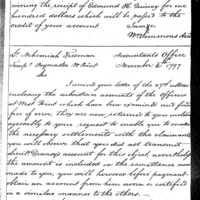 covering the receipt of Edmund H. Quincy for one
hundred dollars which will be passed to the
credit of your account.
Wm Simmons
Lt. Nehemiah Freeman Accountants Office
Paymaster W. Point November 8th 1797
Sir
I received your letter of the 27th ultimo
enclosing the subsistance accounts of the Officers
at West Point which have been examined and found
free of error, they are now returned to you which
agreeably to your request to enable you to make
the necessary settlements with the claimants
you will observe that you did not transmit
Quincy's account for this Object nevertheless
the amount is included in the remittance now
made to you, you will however before payment
obtain an account from him sworn or certified
in a similar manner to the others. —